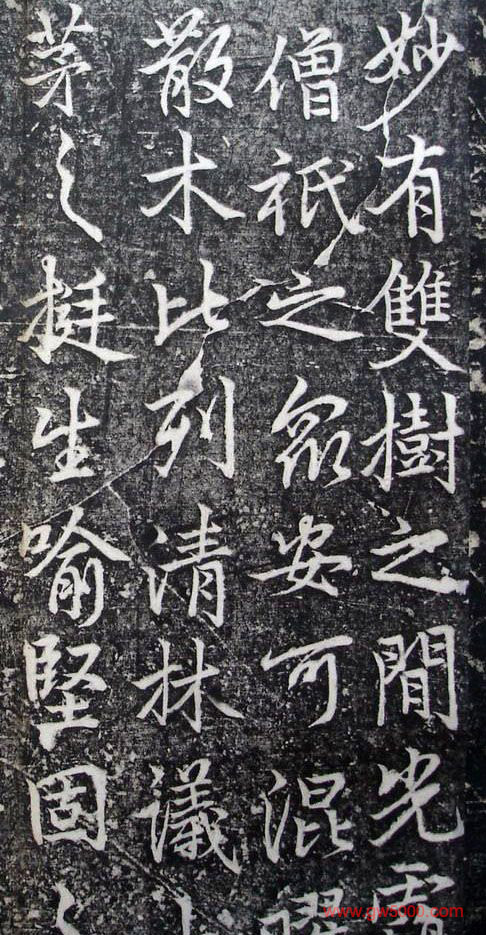 妙有雙樹之間光
僧祇之眾安可混
散木比列清林議
茅之挺生喻堅固
www.gw5000.com